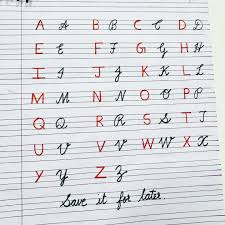 A A B B C C D D
E E F F G G H H
I I J J K K L L
M M N N O O P P
Q Q R R S S T T
U U V V W W X X
Y Y Z Z
Save it for later.